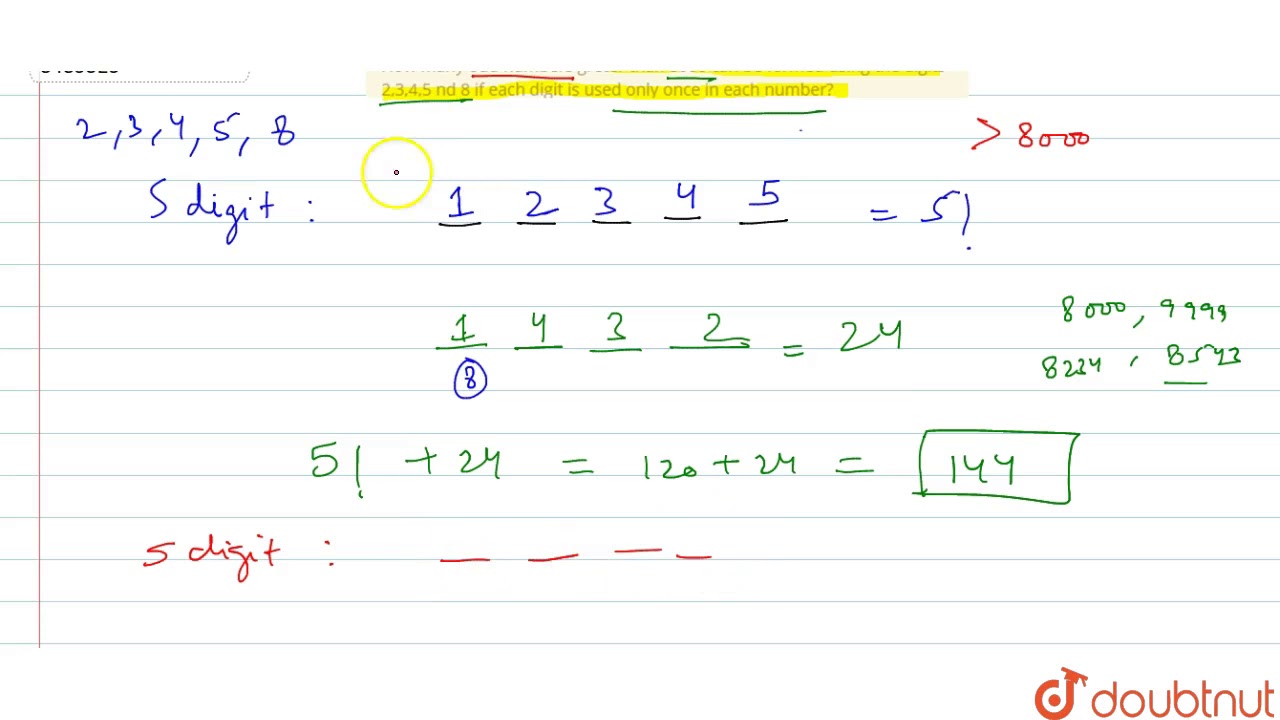 2,3,4,5 nd 8 if each digit is used only once in each number?
2, 3, 4, 5, 8
> 8000
5 digit : 1 2 3 4 5 = 5!
8000, 9999
1 4 3 2 = 24
8234, 8543
8
5! + 24 = 120 + 24 = 144
5 digit :
doubtnut